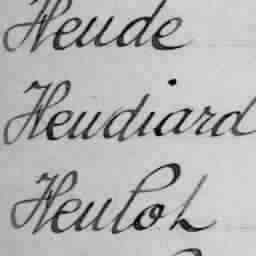 Heude
Heudiard
Heulot